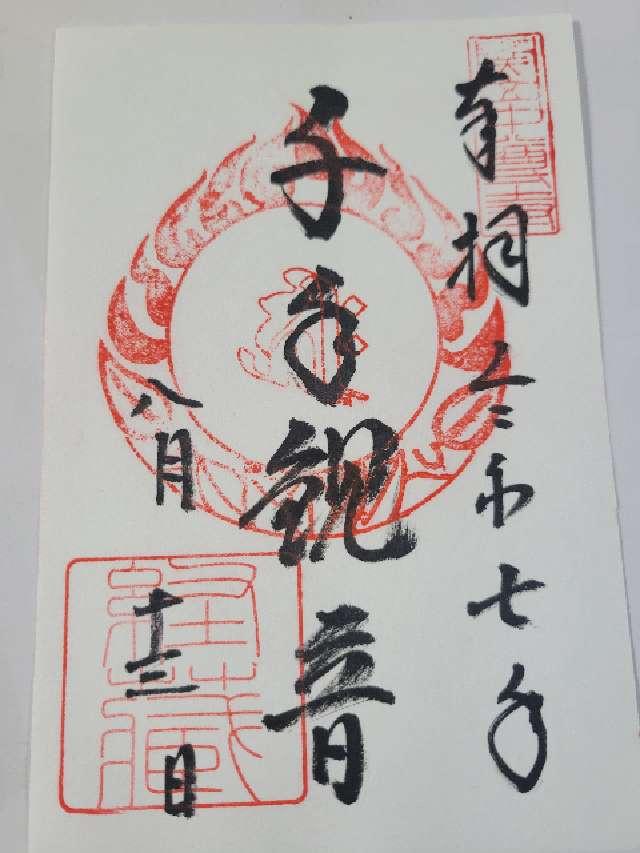 奉拝 令和七年
千手観音
八月十三日
経蔵